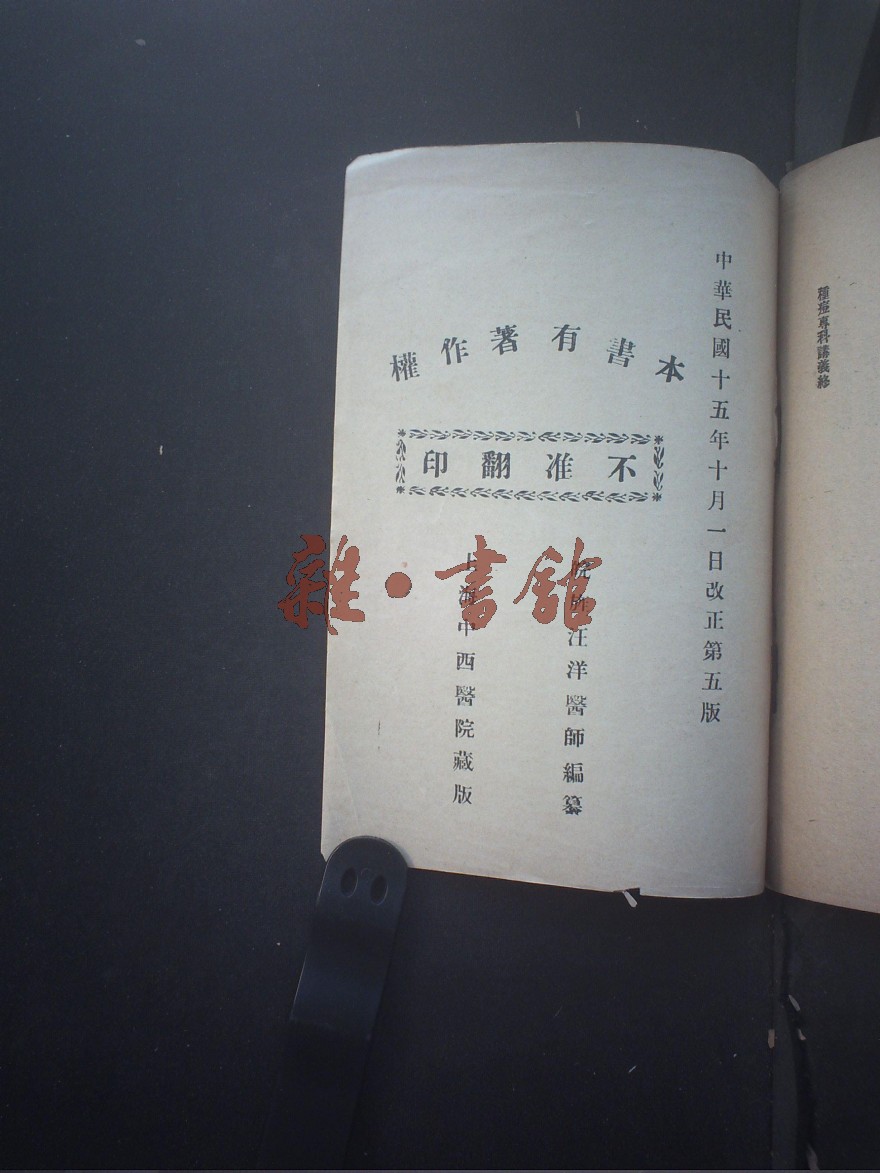 種痘專科講義終
中華民國十五年十月一日改正第五版
本書有著作權
不准翻印
院汪洋醫師編纂
上海中西醫院藏版
雜·書館